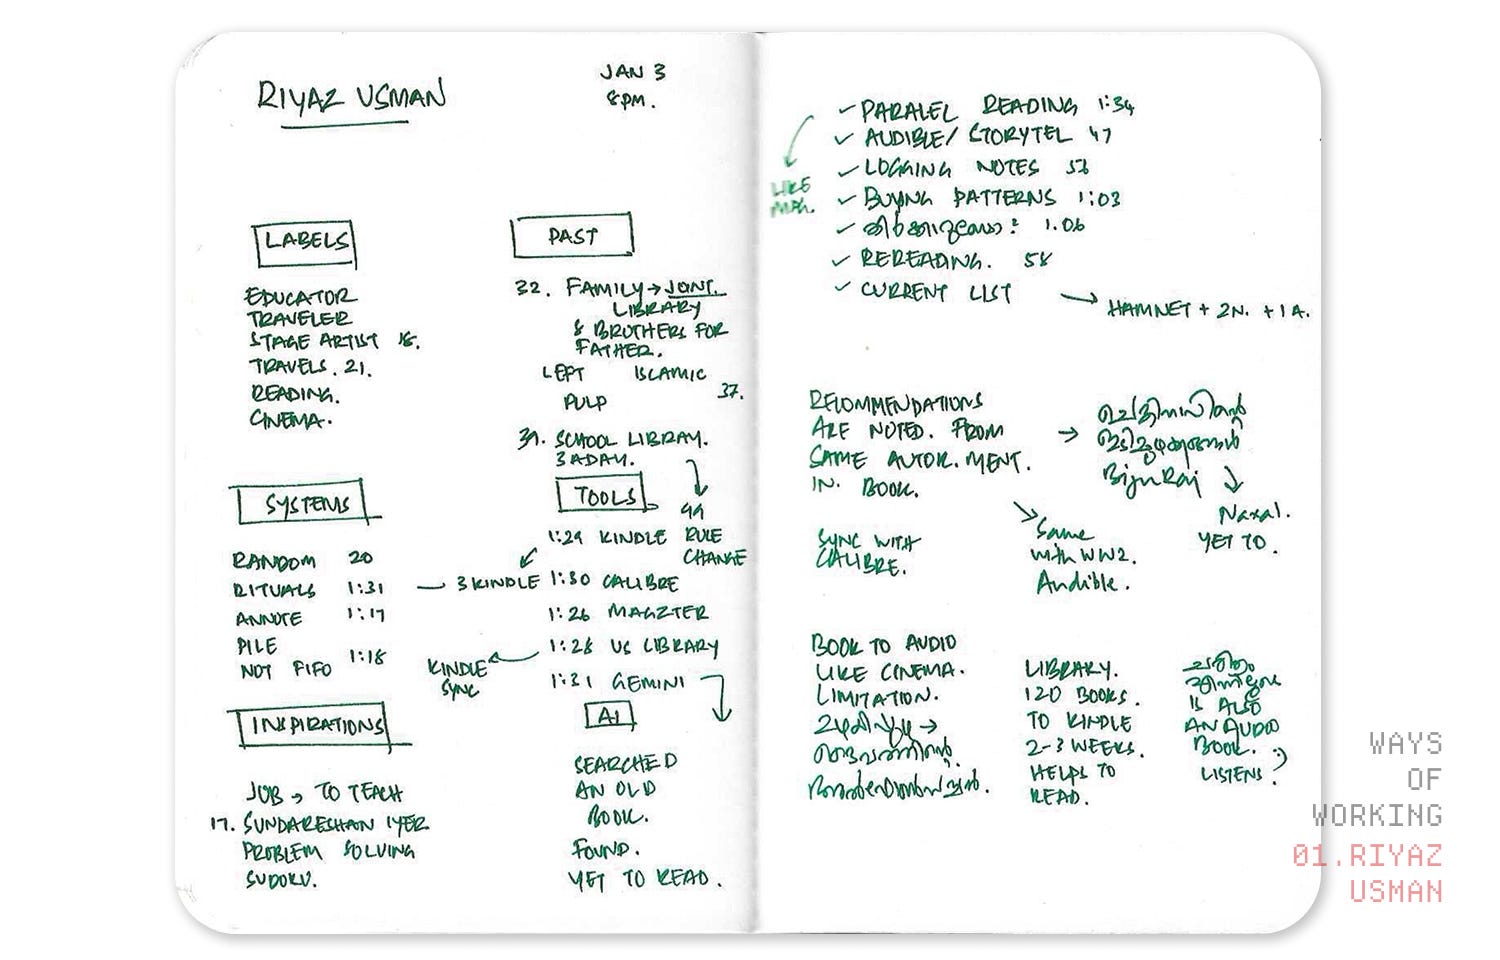 RIYAZ USMAN
JAN 3
8PM.
LABELS
EDUCATOR
TRAVELER
STAGE ARTIST 18.
TRAVELS. 21.
READING.
CINEMA.
PAST
32. FAMILY → JOINT.
LIBRARY
& BROTHERS FOR
FATHER.
LEFT ISLAMIC
PULP 37.
39. SCHOOL LIBRARY.
3 A DAY.
44
RULE
CHANGE
SYSTEMS
RANDOM 20
RITUALS 1:31 — 3 KINDLE
ANNOTE 1:17
PILE
NOT FIFO 1:18
TOOLS
1:29 KINDLE
1:30 CALIBRE
1:26 MAGZTER
1:28 US LIBRARY
KINDLE
SYNC
1:31 GEMINI
INSPIRATIONS
JOB → TO TEACH
17. SUNDARESHAN IYER
PROBLEM SOLVING
SUDOKU.
AI
SEARCHED
AN OLD
BOOK.
FOUND.
YET TO READ.
✓ PARALEL READING 1:34
✓ AUDIBLE/ STORYTEL 47
✓ LOGGING NOTES 53
✓ BUYING PATTERNS 1:03
✓ 1.06
✓ REREADING. 58
✓ CURRENT LIST → HAMNET + 2N. + 1A.
LIKE
MAG.
RECOMMENDATIONS
ARE NOTED. FROM
SAME AUTOR. MENT.
IN BOOK.
→
Bijuraj
Naxal.
YET TO.
SYNC WITH
CALIBRE.
Same
with WW2.
Audible.
BOOK TO AUDIO
LIKE CINEMA.
LIMITATION.
LIBRARY.
120 BOOKS.
TO KINDLE
2-3 WEEKS.
HELPS TO
READ.
IS ALSO
AN AUDIO
BOOK.
LISTENS?
WAYS
OF
WORKING
01.RIYAZ
USMAN